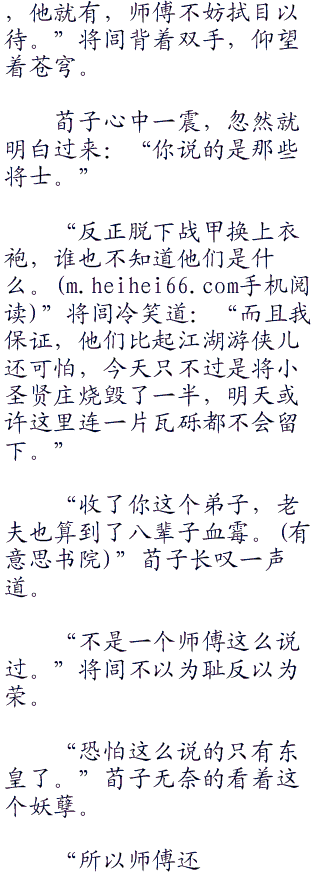 ，他就有，师傅不妨拭目以
待。”将闾背着双手，仰望
着苍穹。
荀子心中一震，忽然就
明白过来：“你说的是那些
将士。”
“反正脱下战甲换上衣
袍，谁也不知道他们是什
么。(m.heihei66.com手机阅
读)”将闾冷笑道：“而且我
保证，他们比起江湖游侠儿
还可怕，今天只不过是将小
圣贤庄烧毁了一半，明天或
许这里连一片瓦砾都不会留
下。”
“收了你这个弟子，老
夫也算到了八辈子血霉。(有
意思书院)”荀子长叹一声
道。
“不是一个师傅这么说
过。”将闾不以为耻反以为
荣。
“恐怕这么说的只有东
皇了。”荀子无奈的看着这
个妖孽。
“所以师傅还